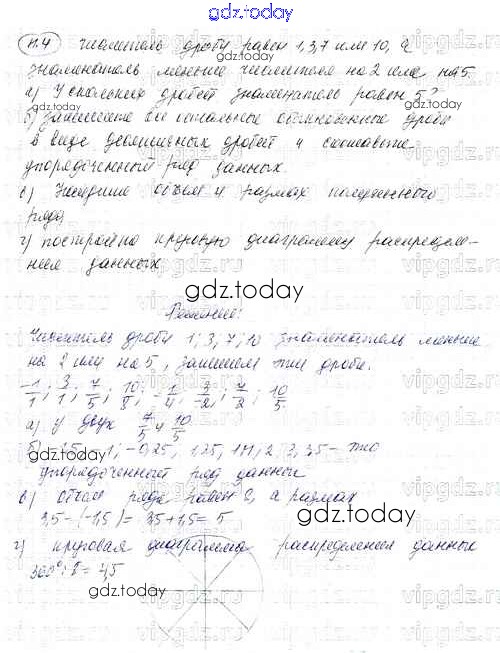 gdz.today
п.4 числитель дроби равен 1,3,7 или 10, а
знаменатель меньше числителя на 2 или на 5.
а) У скольких дробей знаменатель равен 5?
б) запишите все остальные обыкновенные дроби
в виде десятичных дробей и составьте
упорядоченный ряд данных.
в) Найдите объем и размах полученного
ряда
г) постройте круговую диаграмму распределе-
ния данных
gdz.today
Решение:
Числитель дроби 1; 3; 7; 10 знаменатель меньше
на 2 или на 5, запишем эти дроби.
gdz.today
а) у двух 7/5 и 10/5
упорядоченный ряд данных
в) объем ряда равен 8, а размах
3,5-(-1,5)= 3,5+1,5= 5
gdz.today
г) круговая диаграмма распределения данных
360°:8= 45
gdz.today